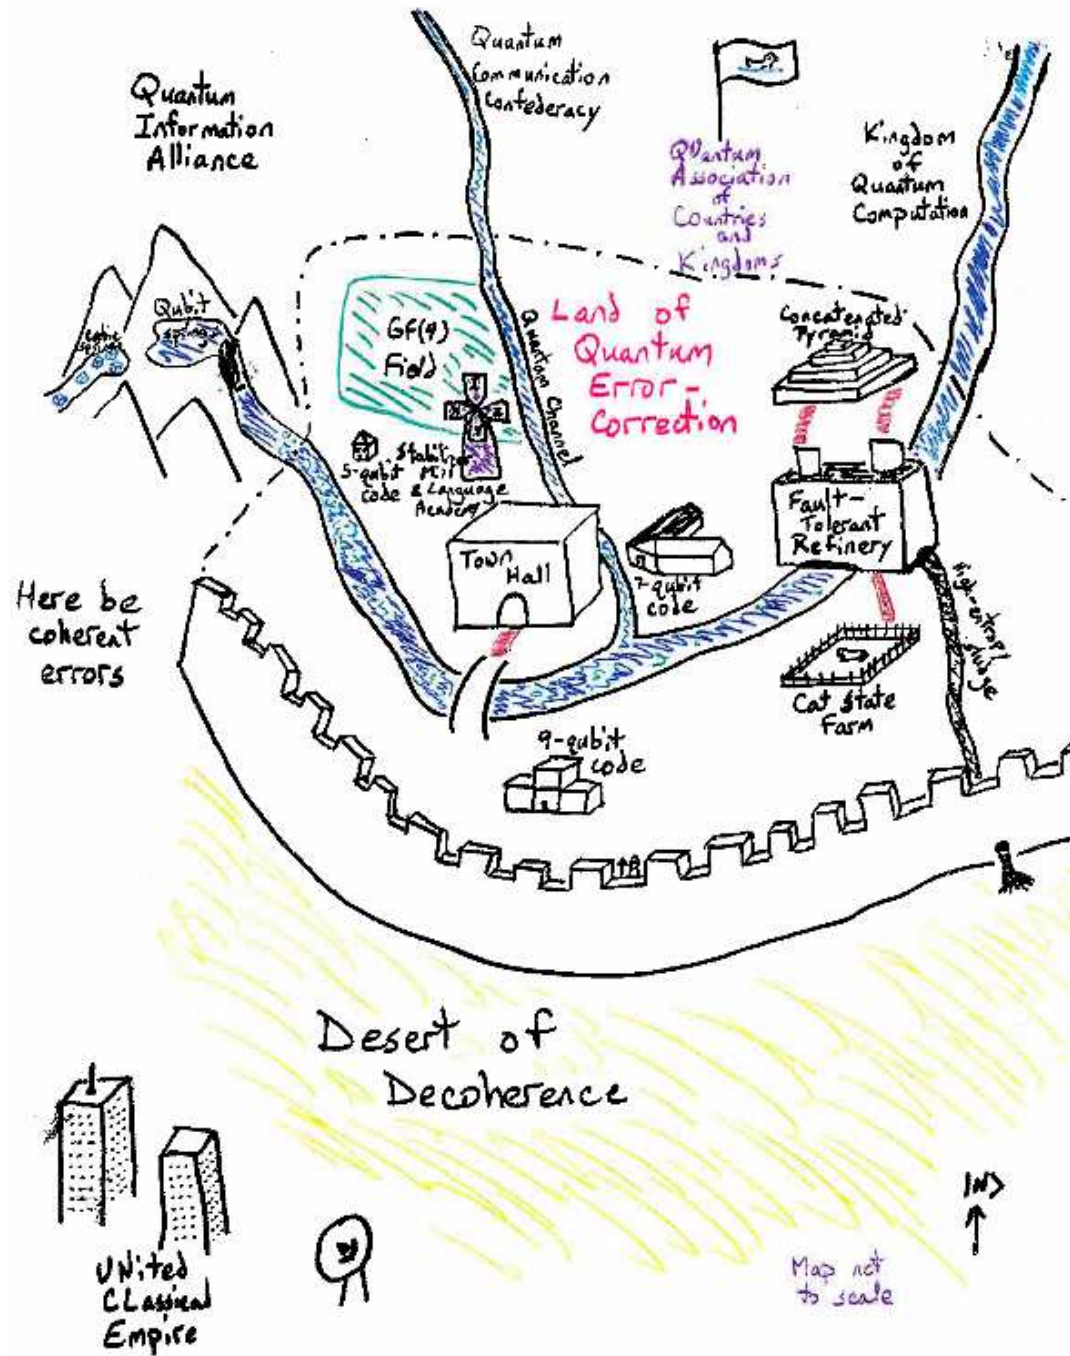 Quantum
Communication
Confederacy
Quantum
Information
Alliance
QUantum
Association
of
Countries
and
Kingdoms
Kingdom
of
Quantum
Computation
Qubit
springs
GF(4)
Field
Quantum Channel
Land of
Quantum
Error-
Correction
Concatenated
Pyramid
5-qubit
code
& Language
Academy
Town
Hall
7-qubit
code
Fault-
Tolerant
Refinery
high-entropy
sludge
Here be
coherent
errors
Cat State
Farm
9-qubit
code
Desert of
Decoherence
UNited
CLassical
Empire
|N>
Map not
to scale